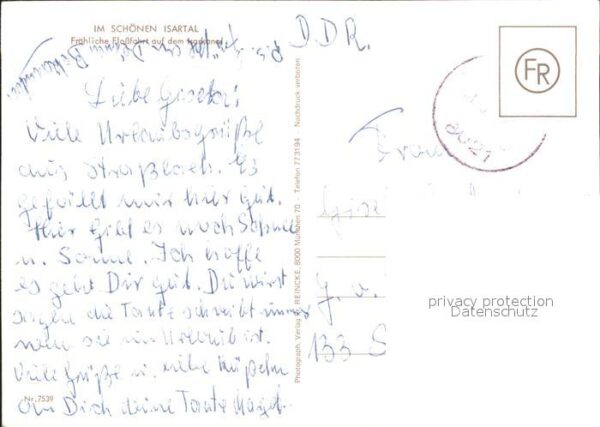 IM SCHÖNEN ISARTAL
Fröhliche Floßfahrt auf dem Isarkanal
D.D.R.
FR
8021
Liebe Gisela!
Viele Urlaubsgrüße
aus Straßlach. Es
gefällt mir hier gut.
Hier gibt es noch Schnee
u. Sonne. Ich hoffe
es geht Dir gut. Du wirst
sagen die Tante schreibt immer
wenn sie im Urlaub ist.
Viele Grüße u. viele Küßchen
an Dich deine Tante
Nr. 7539
Photograph. Verlag REINCKE, 8000 München 70 Telefon 773194 Nachdruck verboten
Frau
133 S
privacy protection
Datenschutz